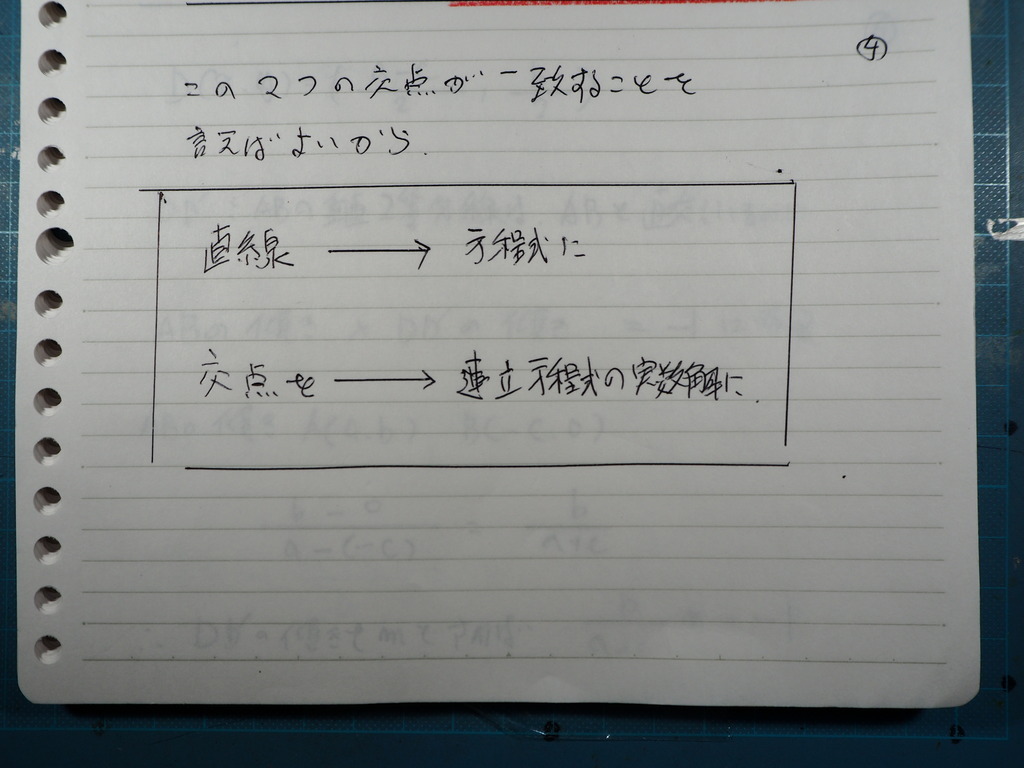 ④
この2つの交点が一致することを
言えばよいから.
直線 → 方程式に
交点を → 連立方程式の実数解に.